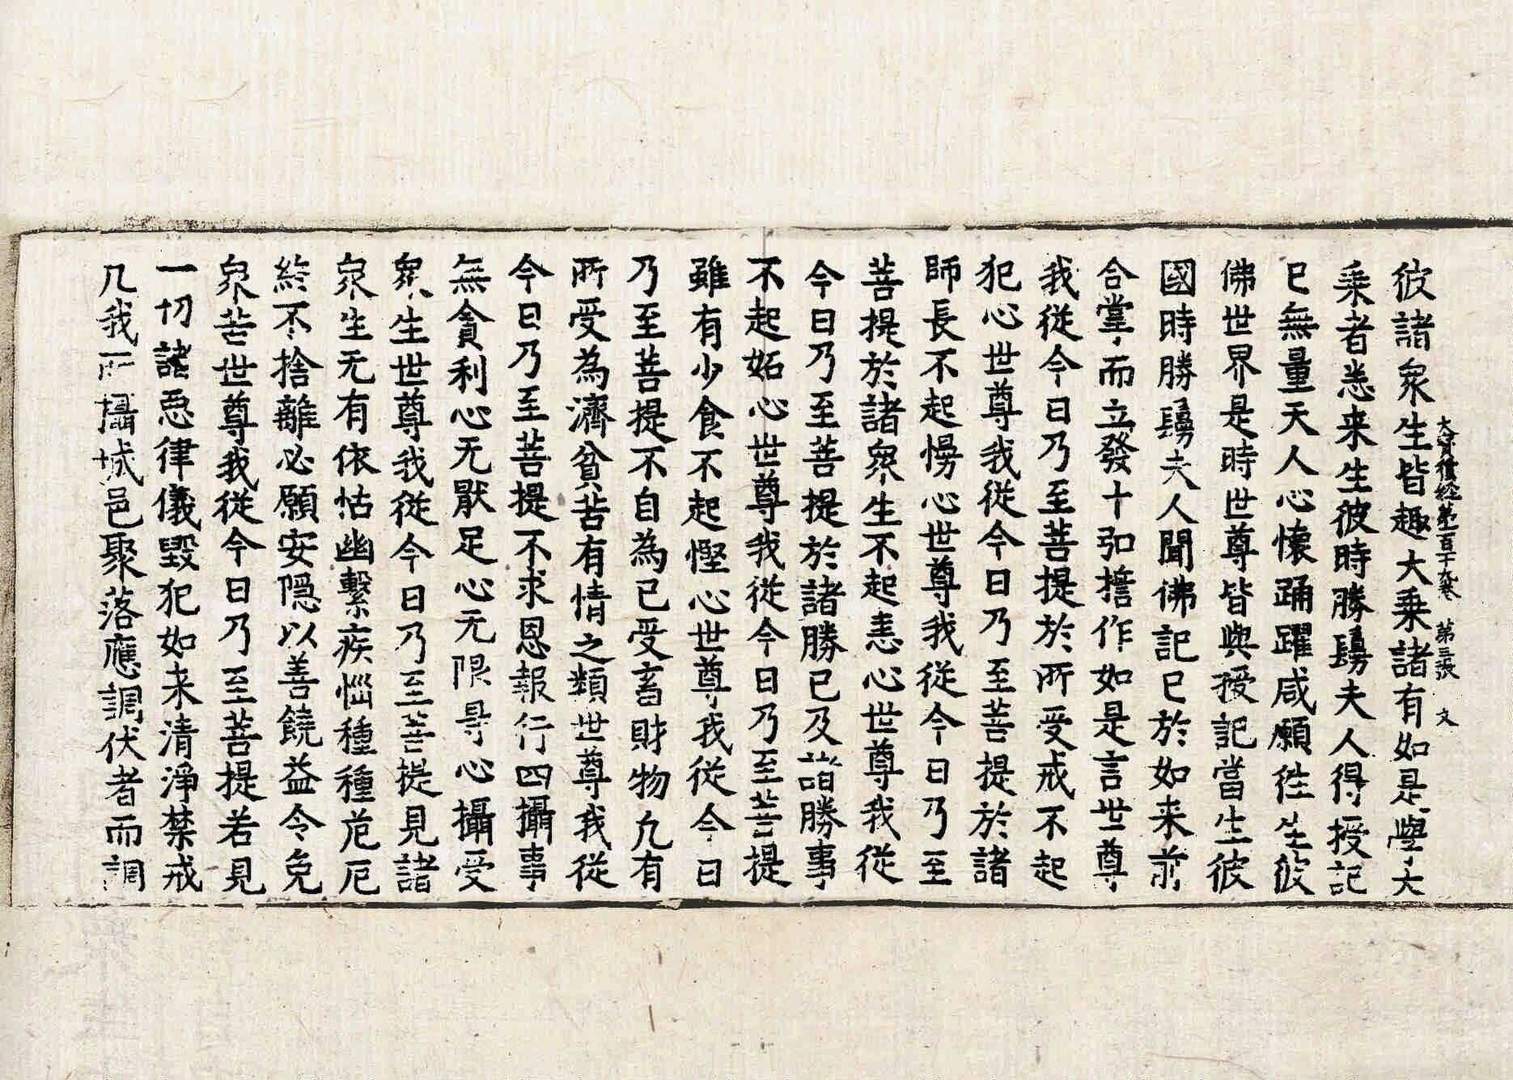 大寶積經第一百十九卷 第三張 文
彼諸衆生皆趣大乘諸有如是學大
乘者悉来生彼時勝鬘夫人得授記
已無量天人心懷踊躍咸願往生彼
佛世界是時世尊皆與授記當生彼
國時勝鬘夫人聞佛記已於如来前
合掌而立發十弘誓作如是言世尊
我從今日乃至菩提於所受戒不起
犯心世尊我從今日乃至菩提於諸
師長不起慢心世尊我從今日乃至
菩提於諸衆生不起恚心世尊我從
今日乃至菩提於諸勝己及諸勝事
不起妬心世尊我從今日乃至菩提
雖有少食不起慳心世尊我從今日
乃至菩提不自為己受畜財物凡有
所受為濟貧苦有情之類世尊我從
今日乃至菩提不求恩報行四攝事
無貪利心无厭足心无限导心攝受
衆生世尊我從今日乃至菩提見諸
衆生无有依怙幽繫疾惱種種危厄
終不捨離必願安隱以善饒益令免
衆苦世尊我從今日乃至菩提若見
一切諸惡律儀毀犯如来清淨禁戒
凡我所攝城邑聚落應調伏者而調